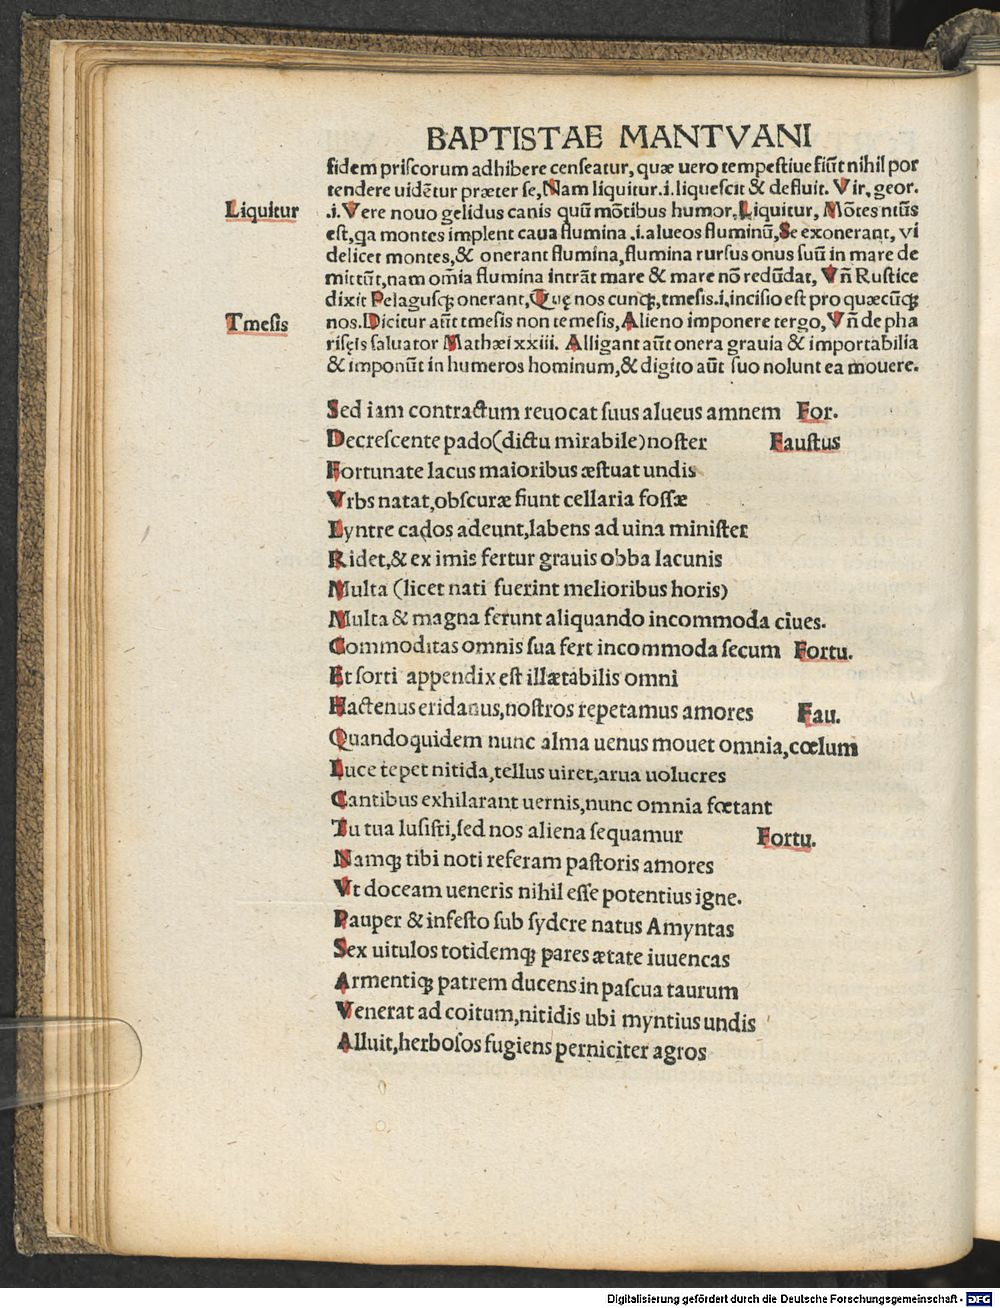 BAPTISTAE MANTVANI
fidem priscorum adhibere censeatur, quæ uero tempestiue fiūt nihil por
tendere uidētur præter se, Nam liquitur.i.liquescit & defluit. Vir, geor.
Liquitur .i. Vere nouo gelidus canis quū mōtibus humor, Liquitur, Mōtes ntūs
est, qa montes implent caua flumina .i.alueos fluminū, Se exonerant, vi
delicet montes, & onerant flumina, flumina rursus onus suū in mare de
mittūt, nam om̄ia flumina intrāt mare & mare nō redūdat, Vn̄ Rustice
dixit Pelagusq; onerant, Quę nos cunq;, tmesis.i, incisio est pro quæcūq;
Tmesis nos. Dicitur aūt tmesis non temesis, Alieno imponere tergo, Vn̄ de pha
risęis saluator Mathæi xxiii. Alligant aūt onera grauia & importabilia
& imponūt in humeros hominum, & digito aūt suo nolunt ea mouere.
Sed iam contractum reuocat suus alueus amnem For.
Decrescente pado (dictu mirabile) noster Faustus
Fortunate lacus maioribus æstuat undis
Vrbs natat, obscuræ fiunt cellaria fossæ
Lyntre cados adeunt, labens ad uina minister
Ridet, & ex imis fertur grauis obba lacunis
Multa (licet nati fuerint melioribus horis)
Multa & magna ferunt aliquando incommoda ciues.
Commoditas omnis sua fert incommoda secum Fortu.
Et sorti appendix est illætabilis omni
Hactenus eridanus, nostros repetamus amores Fau.
Quandoquidem nunc alma uenus mouet omnia, cœlum
Luce tepet nitida, tellus uiret, arua uolucres
Cantibus exhilarant uernis, nunc omnia fœtant
Tu tua lusisti, sed nos aliena sequamur Fortu.
Namq; tibi noti referam pastoris amores
Vt doceam ueneris nihil esse potentius igne.
Pauper & infesto sub sydere natus Amyntas
Sex uitulos totidemq; pares ætate iuuencas
Armentiq; patrem ducens in pascua taurum
Venerat ad coitum, nitidis ubi myntius undis
Alluit, herbosos fugiens perniciter agros
Digitalisierung gefördert durch die Deutsche Forschungsgemeinschaft - DFG